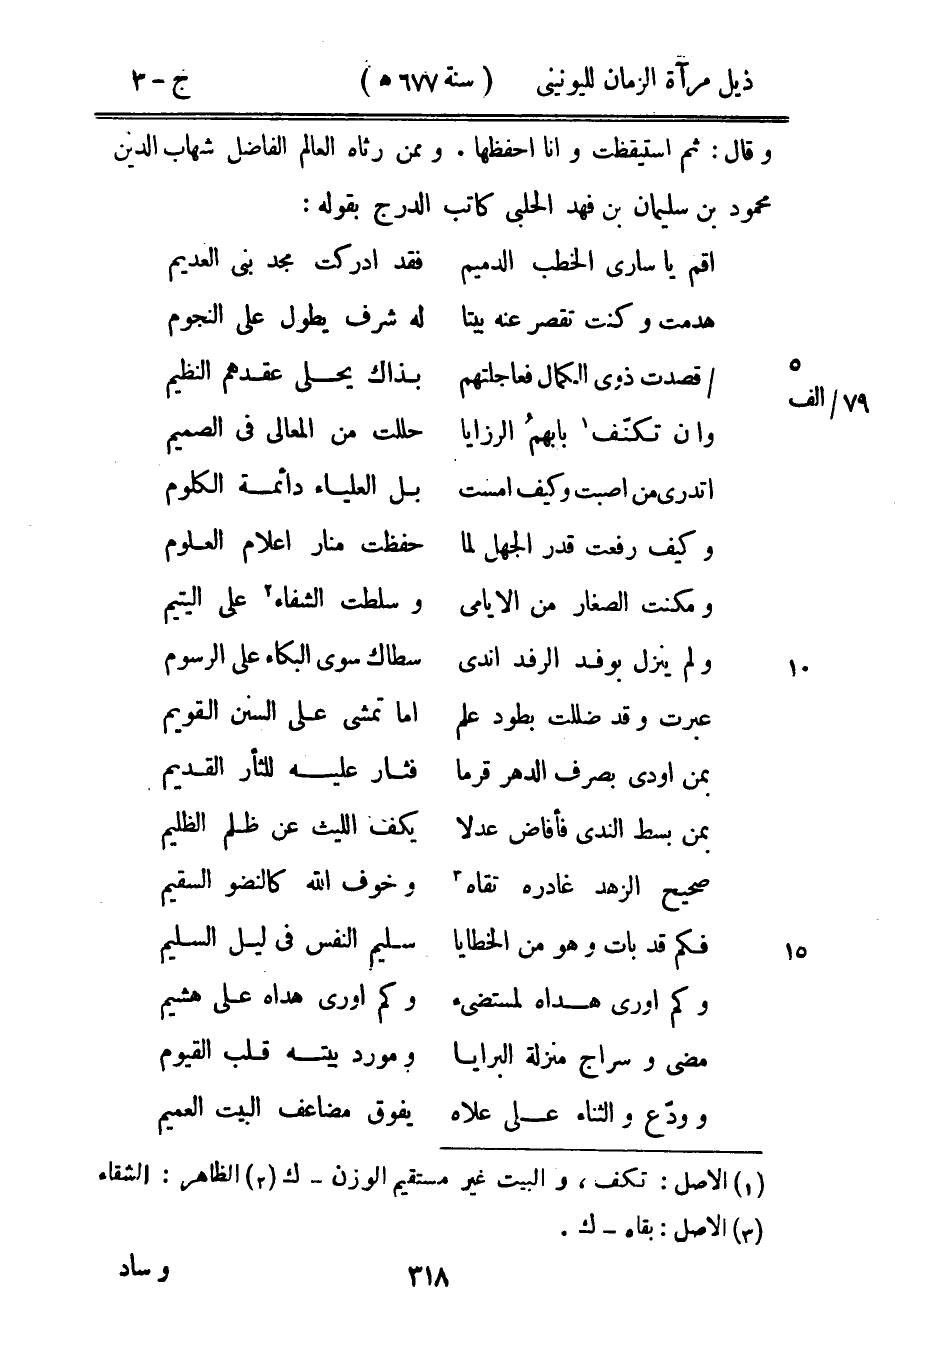 ذيل مرآة الزمان لليونينى ( سنة ٦٧٧ ه ) ج - ٣
و قال : ثم استيقظت و انا احفظها . و ممن رثاه العالم الفاضل شهاب الدين
محمود بن سليمان بن فهد الحلبى كاتب الدرج بقوله :
اقم يا سارى الخطب الدميم فقد ادركت مجد بنى العديم
هدمت و كنت تقصر عنه بيتا له شرف يطول على النجوم
/ قصدت ذوى الكمال فعاجلتهم بذاك يحلى عقدهم النظيم ٥ ٧٩/ الف
وا ن تكنّف١ بابهمُ الرزايا حللت من المعالى فى الصميم
اتدرى من اصبت و كيف امست بل العلياء دائمة الكلوم
و كيف رفعت قدر الجهل لما حفظت منار اعلام العلوم
و مكنت الصغار من الايامى و سلطت الشفاء٢ على اليتيم
و لم ينزل بوفد الرفد اندى سطاك سوى البكاء على الرسوم ١٠
عبرت و قد ضللت بطود علم اما تمشى على السنن القويم
بمن اودى بصرف الدهر قرما فثار عليه للثأر القديم
بمن بسط الندى فأفاض عدلا يكف الليث عن ظلم الظليم
صحيح الزهد غادره تقاه٣ و خوف الله كالنضو السقيم
فكم قد بات و هو من الخطايا سليم النفس فى ليل السليم ١٥
و كم اورى هداه لمستضىء و كم اورى هداه على هشيم
مضى و سراج منزلة البرايا و مورد بيته قلب القيوم
و ودّع و الثناء على علاه يفوق مضاعف البيت العميم
(١) الاصل : تكف ، و البيت غير مستقيم الوزن - ك (٢) الظاهر : الشقاء
(٣) الاصل : بقاه - ك .
٣١٨ و ساد